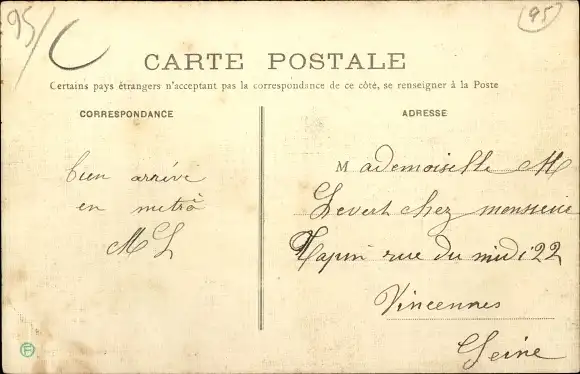 95/
95
CARTE POSTALE
Certains pays étrangers n'acceptant pas la correspondance de ce côté, se renseigner à la Poste
CORRESPONDANCE
bien arrivé
en metrò
ML
ADRESSE
Mademoiselle M
Levert chez monsieur
rue du midi 22
Vincennes
Seine